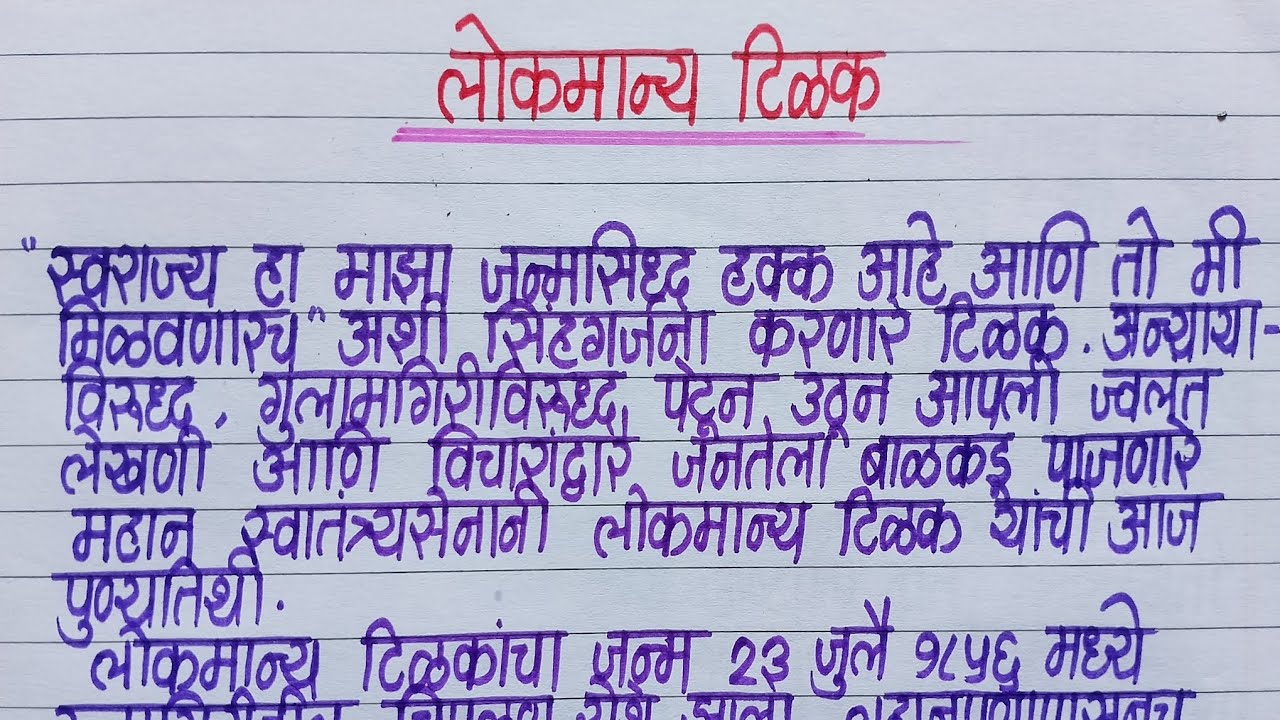 लोकमान्य टिळक
"स्वराज्य हा माझा जन्मसिध्द हक्क आहे आणि तो मी
मिळवणारच" अशी सिंहगर्जना करणारे टिळक. अन्याया-
विरुध्द, गुलामगिरीविरुध्द, पेटून उठून आपली ज्वलंत
लेखणी आणि विचारांद्वारे जनतेला बाळकडू पाजणारे
महान स्वातंत्र्यसेनानी लोकमान्य टिळक यांची आज
पुण्यतिथी.
लोकमान्य टिळकांचा जन्म २३ जुलै १८५६ मध्ये